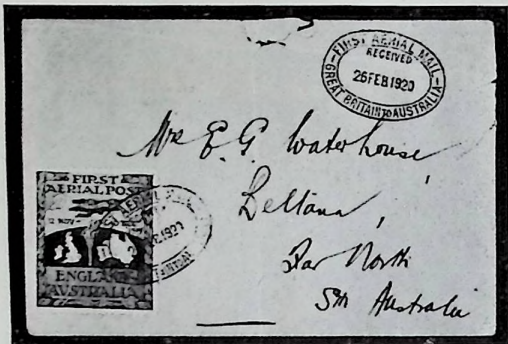 FIRST AERIAL MAIL
RECEIVED
26 FEB 1920
GREAT BRITAIN TO AUSTRALIA
Mrs E. G. Waterhouse,
Beltana,
Far North
Sth Australia
FIRST
AERIAL POST
12 NOV
ENGLAND
AUSTRALIA
1920